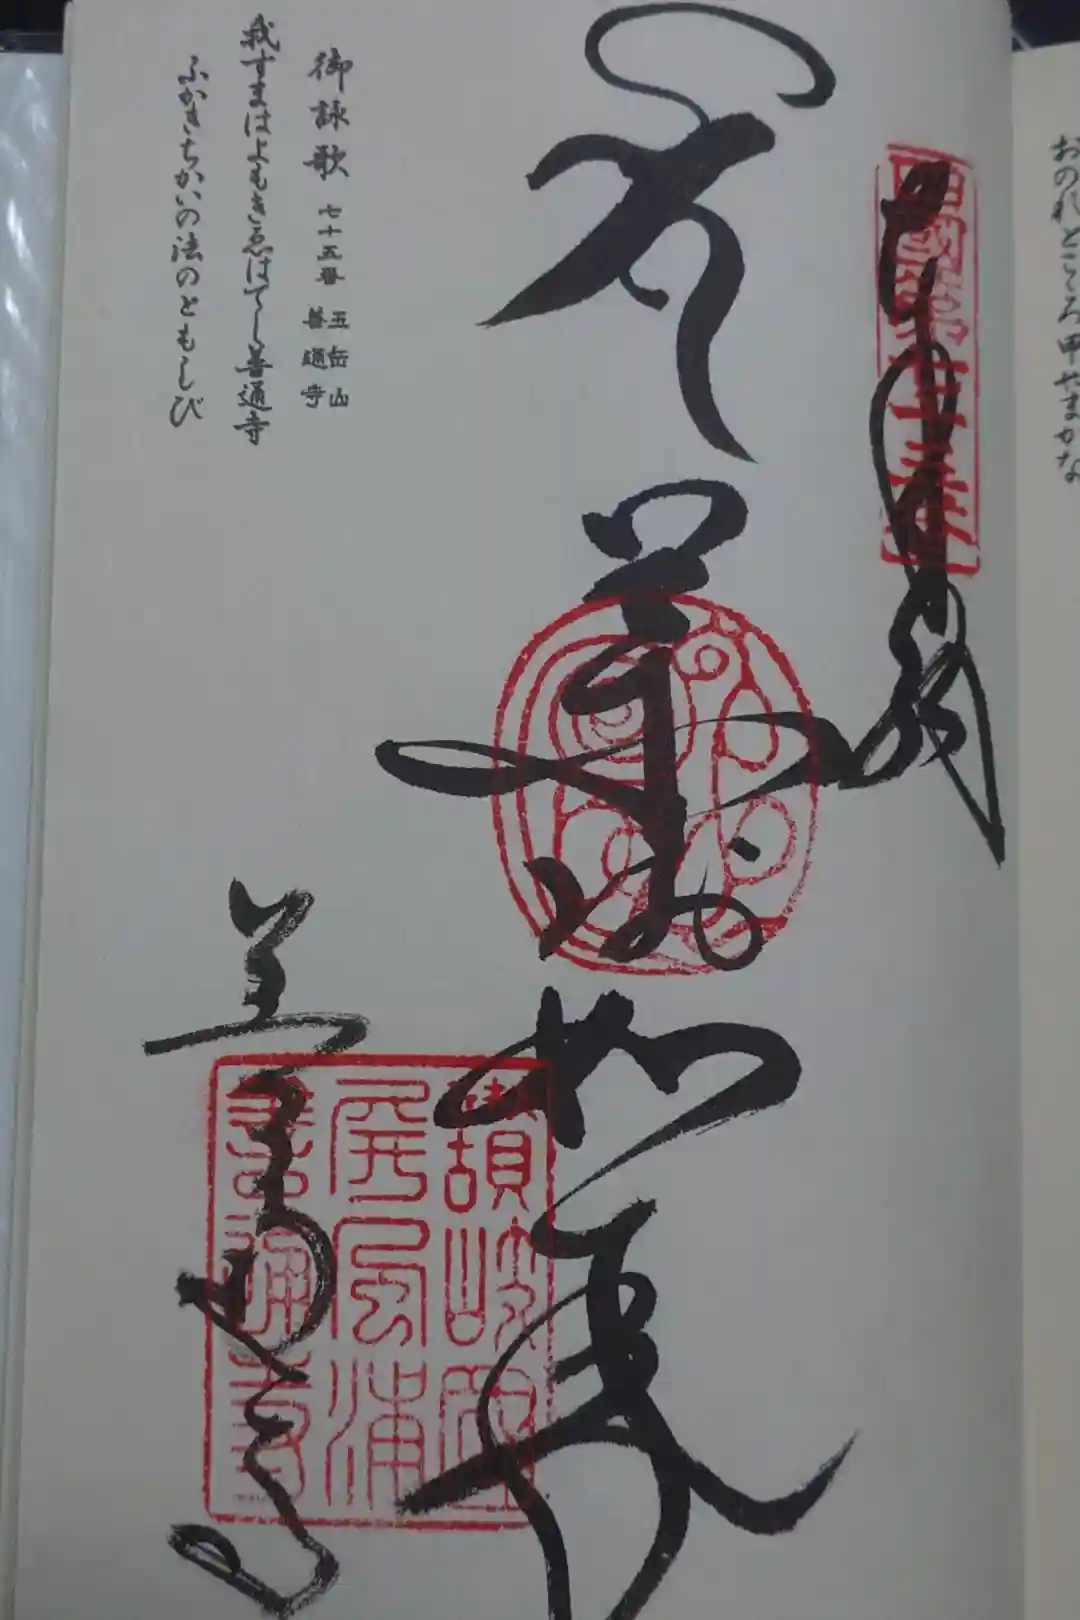 おのれところ
奉納
薬師如来
善通寺
讃岐國
屏風浦
善通寺
御詠歌 七十五番 五岳山 善通寺
我すまはよもきゑはてし善通寺
ふかきちかいの法のともしび